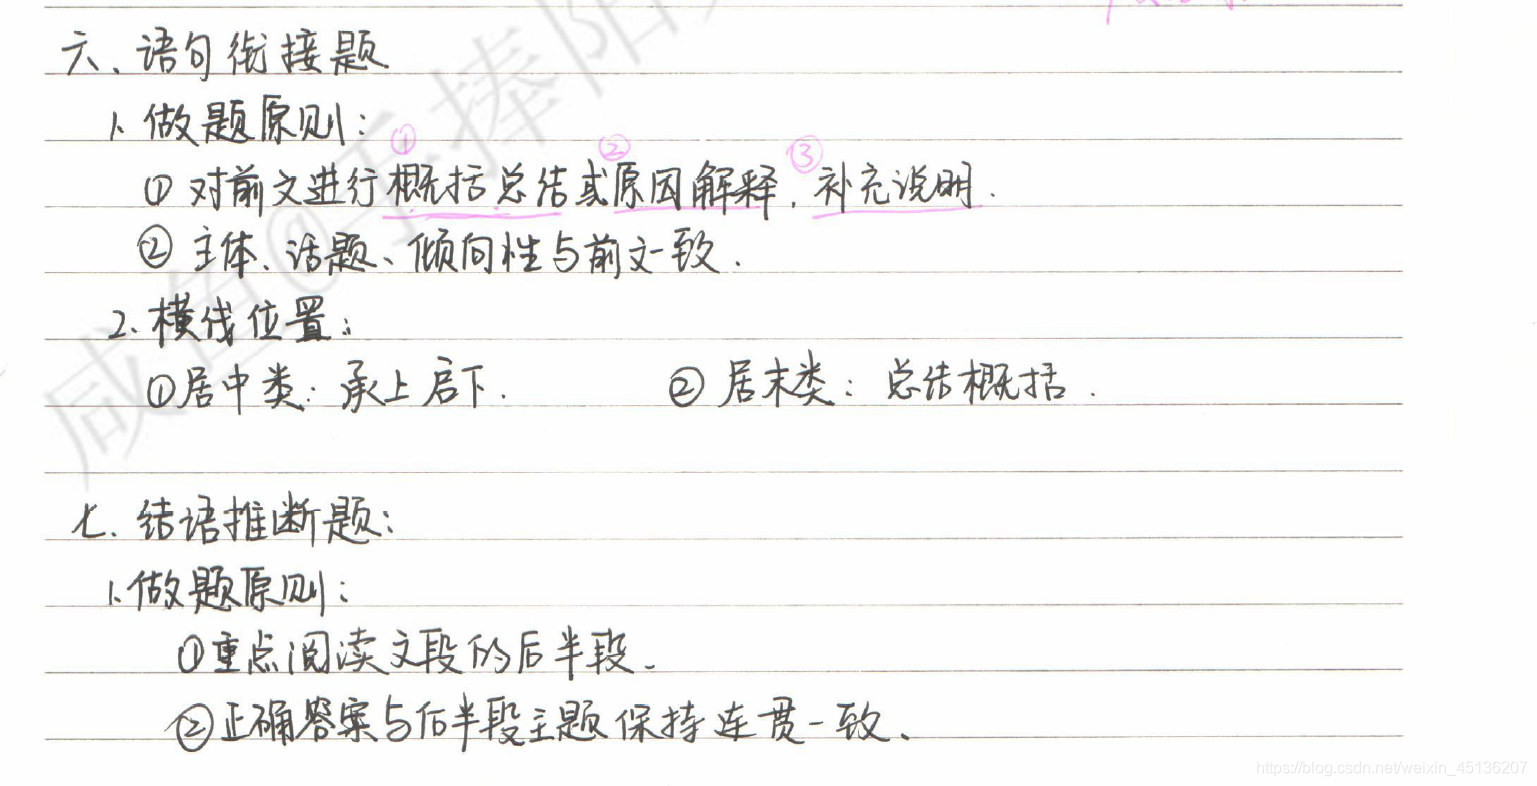 六、语句衔接题
1.做题原则：
① ② ③
①对前文进行概括总结或原因解释，补充说明.
②主体、话题、倾向性与前文一致.
2.横线位置：
①居中类：承上启下. ②居末类：总结概括.
七、结语推断题：
1.做题原则：
①重点阅读文段的后半段.
②正确答案与后半段主题保持连贯一致.
咸鱼@手捧阳
https://blog.csdn.net/weixin_45136207